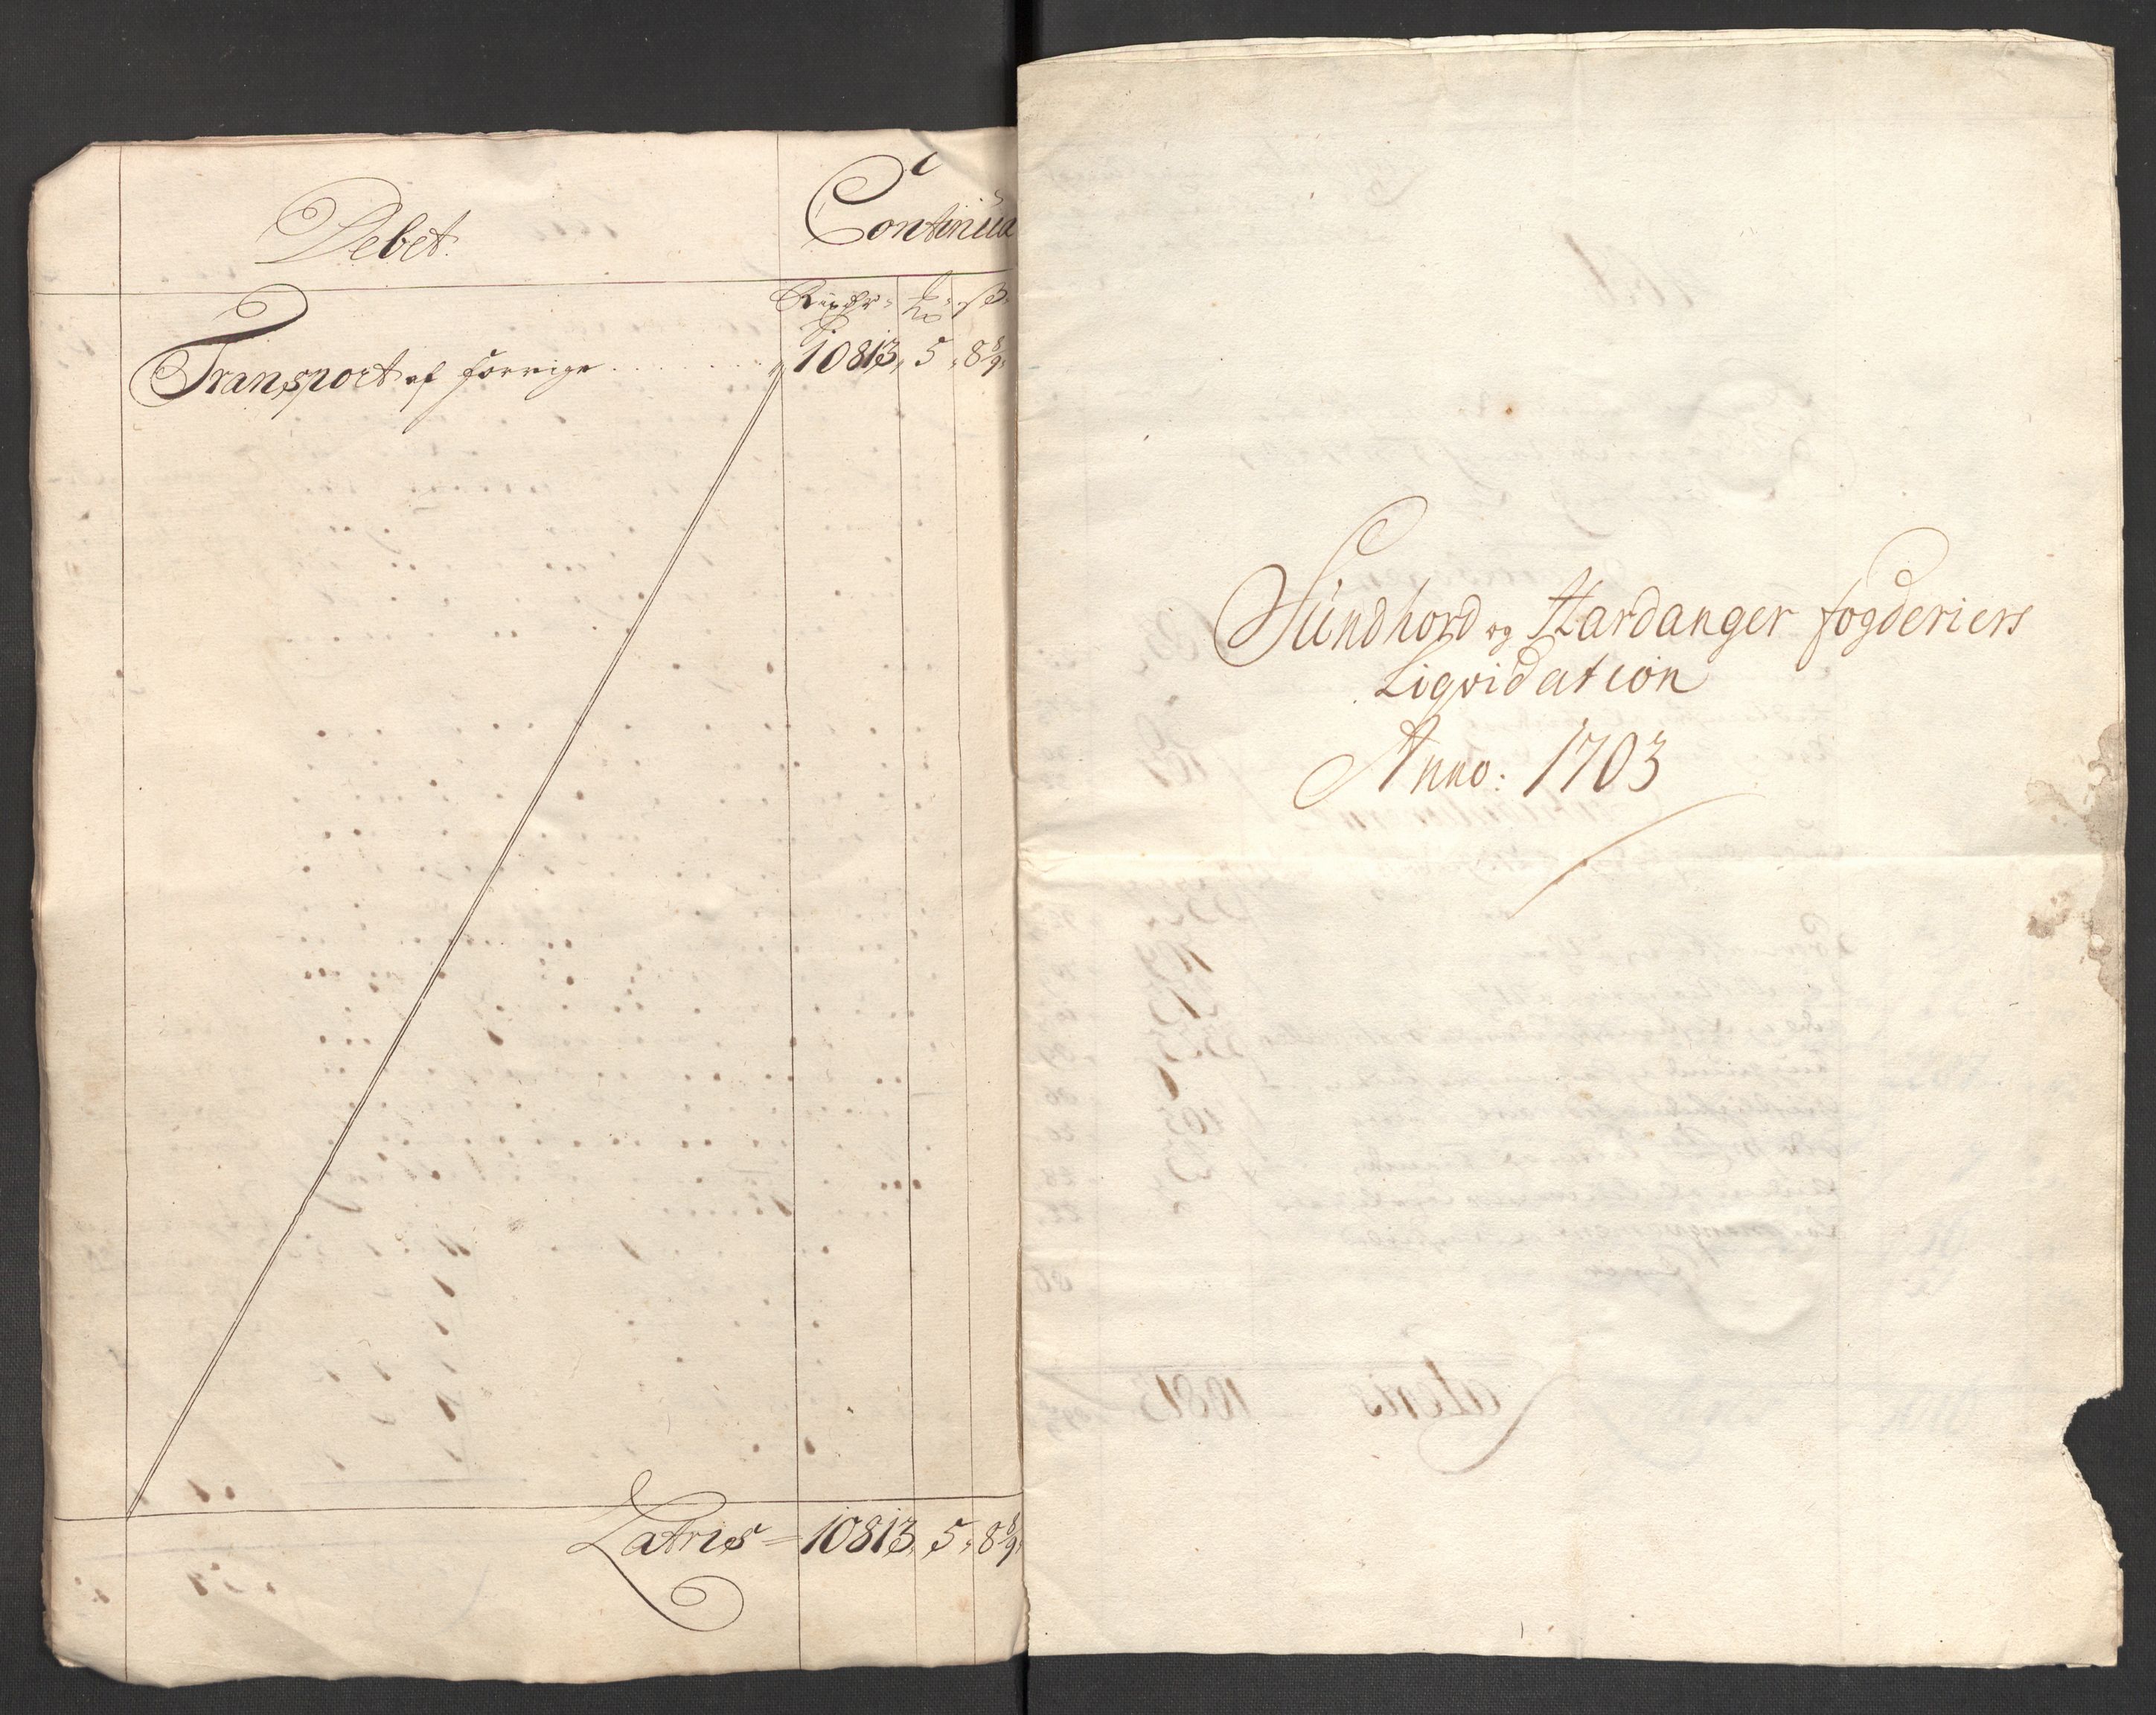 Debet.
Continua
Rixdr. ß.
Transport af forrige . . . . . . . 10813, 5, 8 8/9,
Latris = 10813, 5, 8 8/9,
Sündhord og Hardanger fogderiers
Liqvidation
Anno: 1703